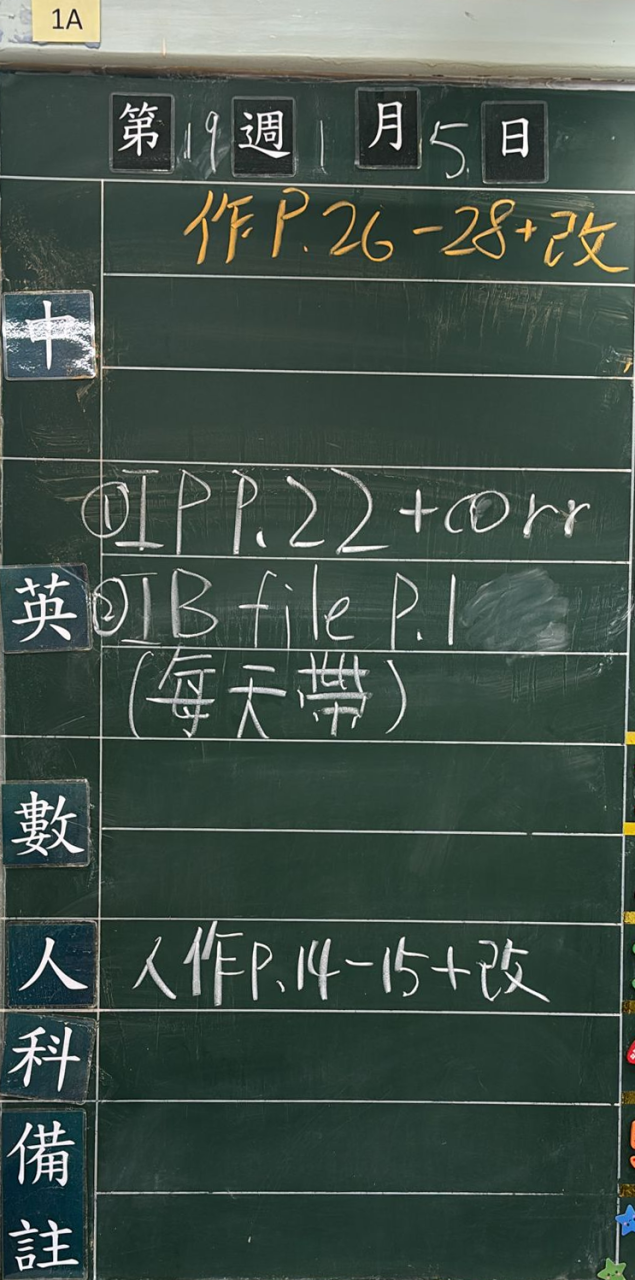 1A
第19週1月5日
作P.26-28+改
中
①IP P.22+corr
英 ②IB file P.1
(每天帶)
數
人 人作P.14-15+改
科
備
註